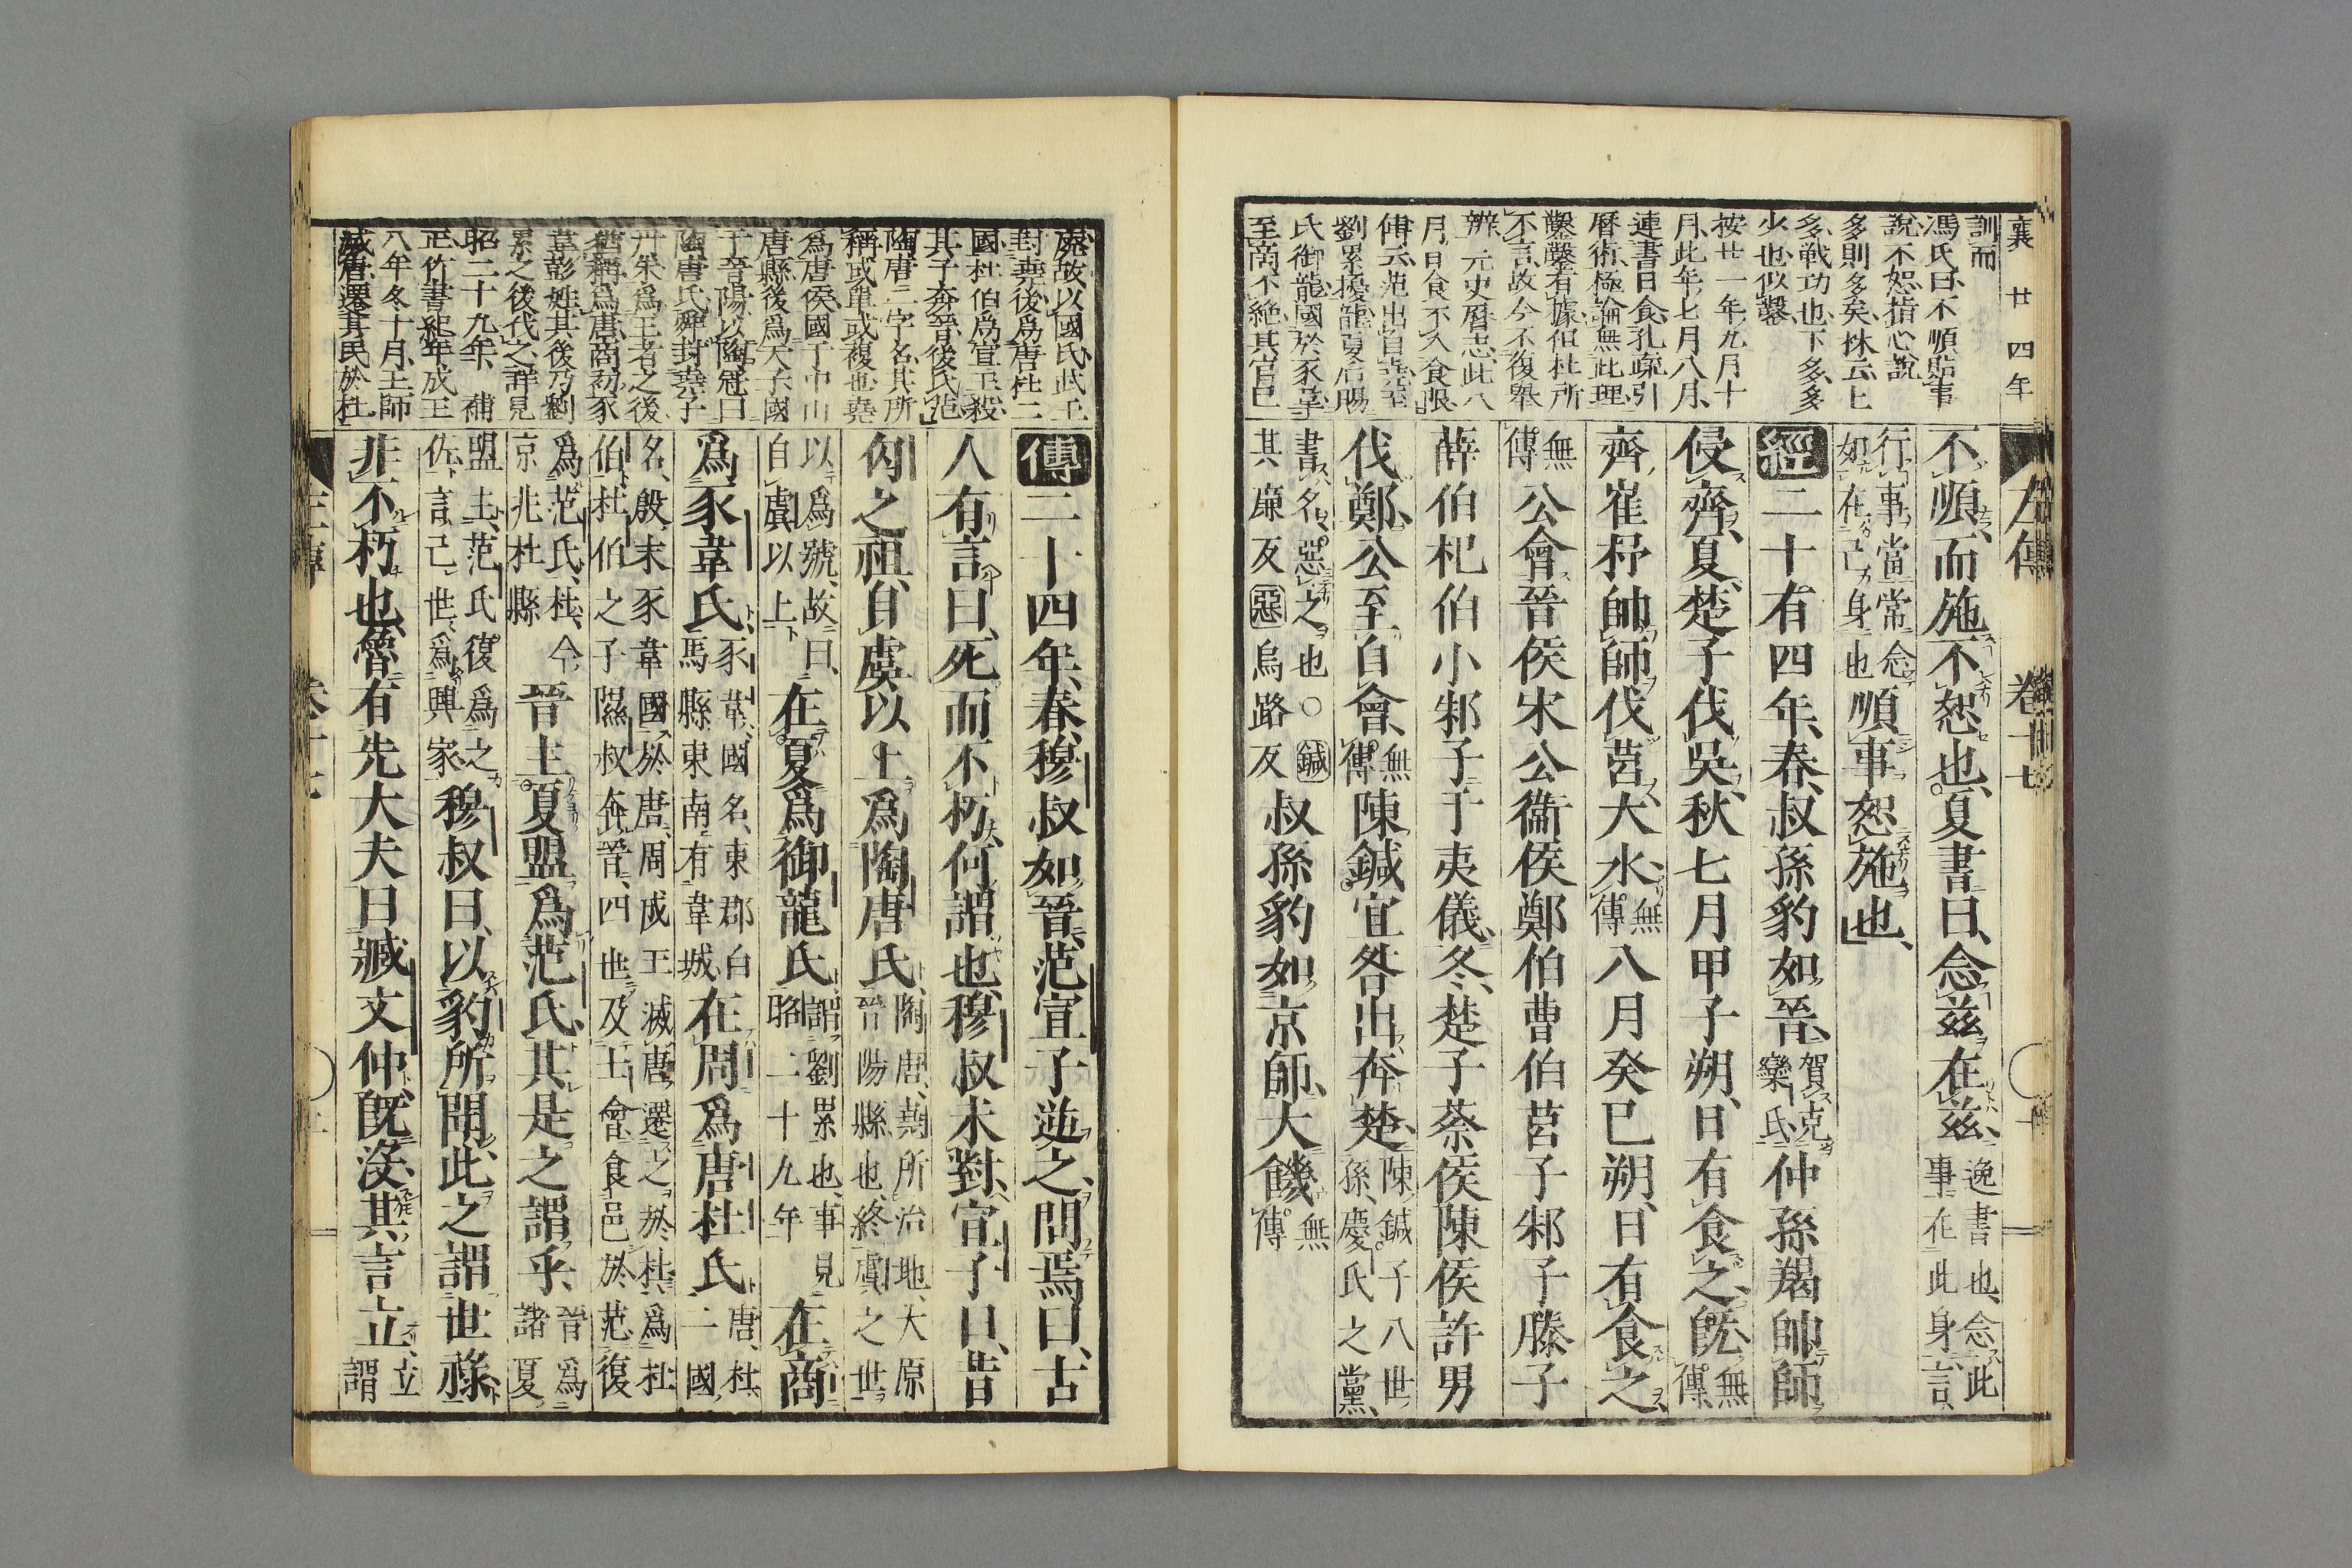 襄 廿四年
訓而
馮氏曰不順貼事
說不恕指心說
多則多矣林云上
多戰功也下多多
少也似鑿
按廿一年九月十
月此年七月八月
連書日食孔疏引
曆術極論無此理
鑿鑿有據但杜所
不言故今不復舉
辨元史曆志此八
月日食不入食限
傳云范出自
劉累擾龍夏后賜
氏御龍國於豕韋
至商不絕其官已
左傳 卷十七
不順而施不恕也夏書曰念茲在茲
逸書也念此
事在此身言
行事當常念
如在己身也
順事恕施也
經二十有四年春叔孫豹如晉
賀克
欒氏
仲孫羯帥師
侵齊夏楚子伐吳秋七月甲子朔日有食之既
無
傳
齊崔杼帥師伐莒大水
無
傳
八月癸巳朔日有食之
無
傳
公會晉侯宋公衞侯鄭伯曹伯莒子邾子滕子
薛伯杞伯小邾子于夷儀冬楚子蔡侯陳侯許男
伐鄭公至自會
無
傳
陳鍼宜咎出奔楚
陳鍼子八世
孫慶氏之黨
書名惡之也○鍼
其廉反惡烏路反
叔孫豹如京師大饑
無
傳
處故以國氏武王
封堯後爲唐杜二
國杜伯爲宣王殺
其子奔晉後氏范
陶唐二字名其所
稱或單或複也堯
爲唐侯國于中山
唐縣後爲天子國
于晉陽以陶冠曰
陶唐氏舜封堯子
丹朱爲王者之後
猶稱爲唐商初豕
韋彭姓其後乃劉
累之後代之詳見
昭二十九年 補
正竹書紀年成王
八年冬十月王師
滅唐遷其民於杜
傳二十四年春穆叔如晉范宣子逆之問焉曰古
人有言曰死而不朽何謂也穆叔未對宣子曰昔
匄之祖自虞以上爲陶唐氏
陶唐堯所治地大原
晉陽縣也終虞之世
以爲號故曰
自虞以上
在夏爲御龍氏
謂劉累也事見
昭二十九年
在商
爲豕韋氏
豕韋國名東郡白
馬縣東南有韋城
在周爲唐杜氏
唐杜
二國
名殷末豕韋國於唐周成王滅唐遷之於杜爲杜
伯杜伯之子隰叔奔晉四世及士會食邑於范復
爲范氏杜今
京兆杜縣
晉主夏盟爲范氏其是之謂乎
晉爲
諸夏
盟主范氏復爲之
佐言己世爲興家
穆叔曰以豹所聞此之謂世祿
非不朽也魯有先大夫曰臧文仲既沒其言立
立
謂